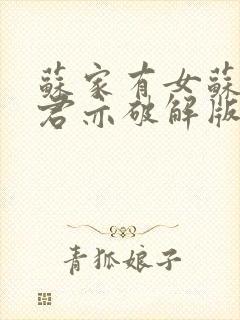 蘇家有女蘇
君亦破解版
青狐娘子